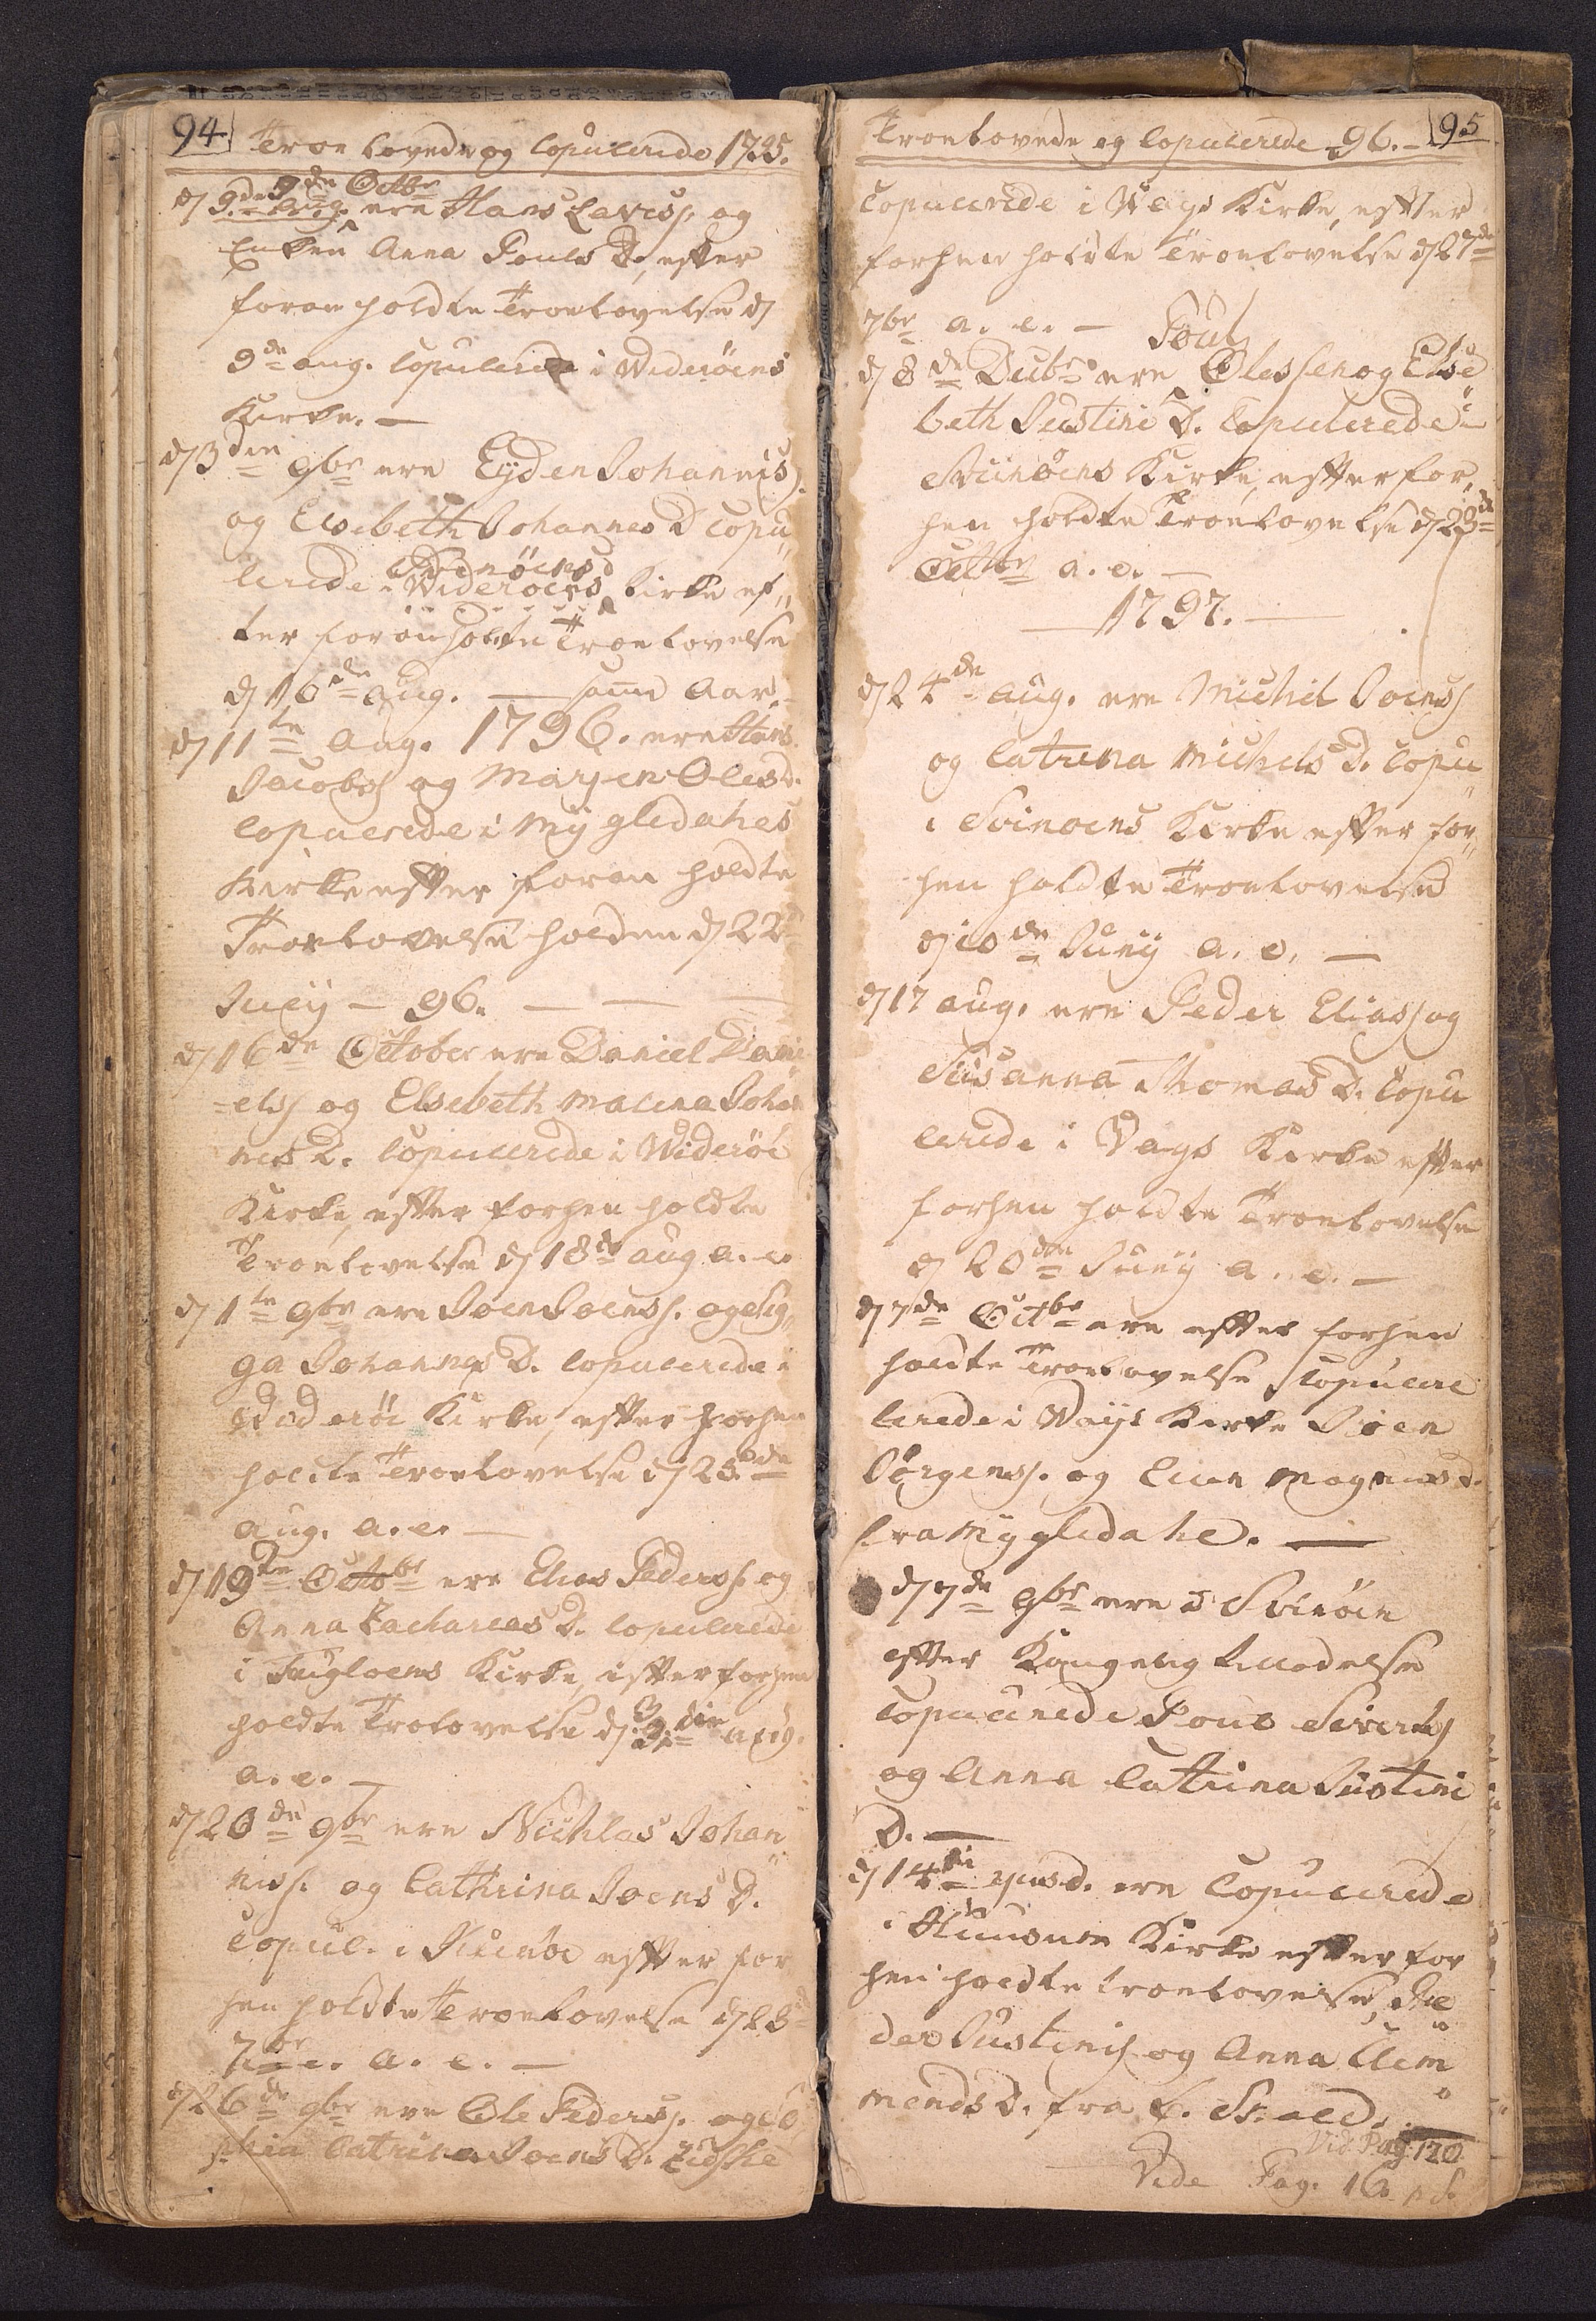 94 Troe lovede og Copulerede 1795.
d 9de Aug. 9de Octbr ere Hans Lavess. og
Enken Anna Pouls D. efter
foran holdte Troelovelse d
9de aug. Copulerede i Wideröens
Kirke. —
d 3die 9br ere Eyden Johanniss.
og Elsebeth Johannes D Copu„
lerede i Wideröens Svinöens Kirke ef„
ter foran holdte Troelovelse
d 16de aug. — samme Aar.
d 11te Aug. 1796. ere Hans
Jacobs og Marjen Olesd.
Copulerede i Mygledahls
Kirke efter foran holdte
Troelovelse holden d 22
Juny — 96. — — —
d 16de October ere Daniel Dani
=els og Elsebeth Malena Johan
nes D. Copulerede i Wideröe
Kirke, efter forhen holdte
Troelovelse d 18de aug a. e.
d 1te 9br ere Joen Joenss. og Sig„
ga Johannes D. Copulerede i
Wideröe Kirke, efter forhen
holdte Troelovelse d 23de
aug. a. e. —
d 19de Octobr ere Elias Pederss. og
Anna Zacharias D. Copulerede
i Fugloens Kirke, efter forhen
holdte Trolovelse d. 3die aug.
a. e. —
d 20de 9br ere Nichlas Johan
niss. og Cathrina Joens D.
Copul. i Kunöe efter for
hen holdte Troelovelse d 23
7br. a. e. —
d 26de 9br ere Ole Pederss. og So
phia Catrina Joens D.
Troelovede og Copulerede 96. — 95
Copulerede i Wags Kirke, efter
forhen holdte Troelovelse d 27de
7br a. e. —
d 8de Decbr ere Poul Olessen og Else
beth Justini D. Copulerede i
Svinöens Kirke, efter for„
hen holdte Troelovelse d 23de
Octbr a. e. —
— 1797. —
d 24de aug. ere Michel Joens
og Catrina Michels D. Copu„
i Svinoens Kirke efter for„
hen holdte Troelovelse
d 10de Juny a. e. —
d 17 aug. ere Peder Elias og
Susanna Thomas D. Copu
lerede i Vags Kirke efter
forhen holdte Troelovelse
d 20de Juny a. e. —
d 7de Octbr ere efter forhen
holdte Troelovelse Copulere
lerede i Wags Kirke Joen
Jörgenss. og Elien Magnusd.
fra Mygledahl. —
d 7de 9br ere i Svinöen
efter Kongelig Tilladelse
Copulerede Poul Siverts
og Anna Catrina Justini
D. —
d 14de ejusd. ere Copulerede
i Huusum Kirke efter for
hen holdte troelovelse, Pe
der Justinis og Anna Clem
mends D. fra S.
Vid. Pag. 120
Vide Pag. 16